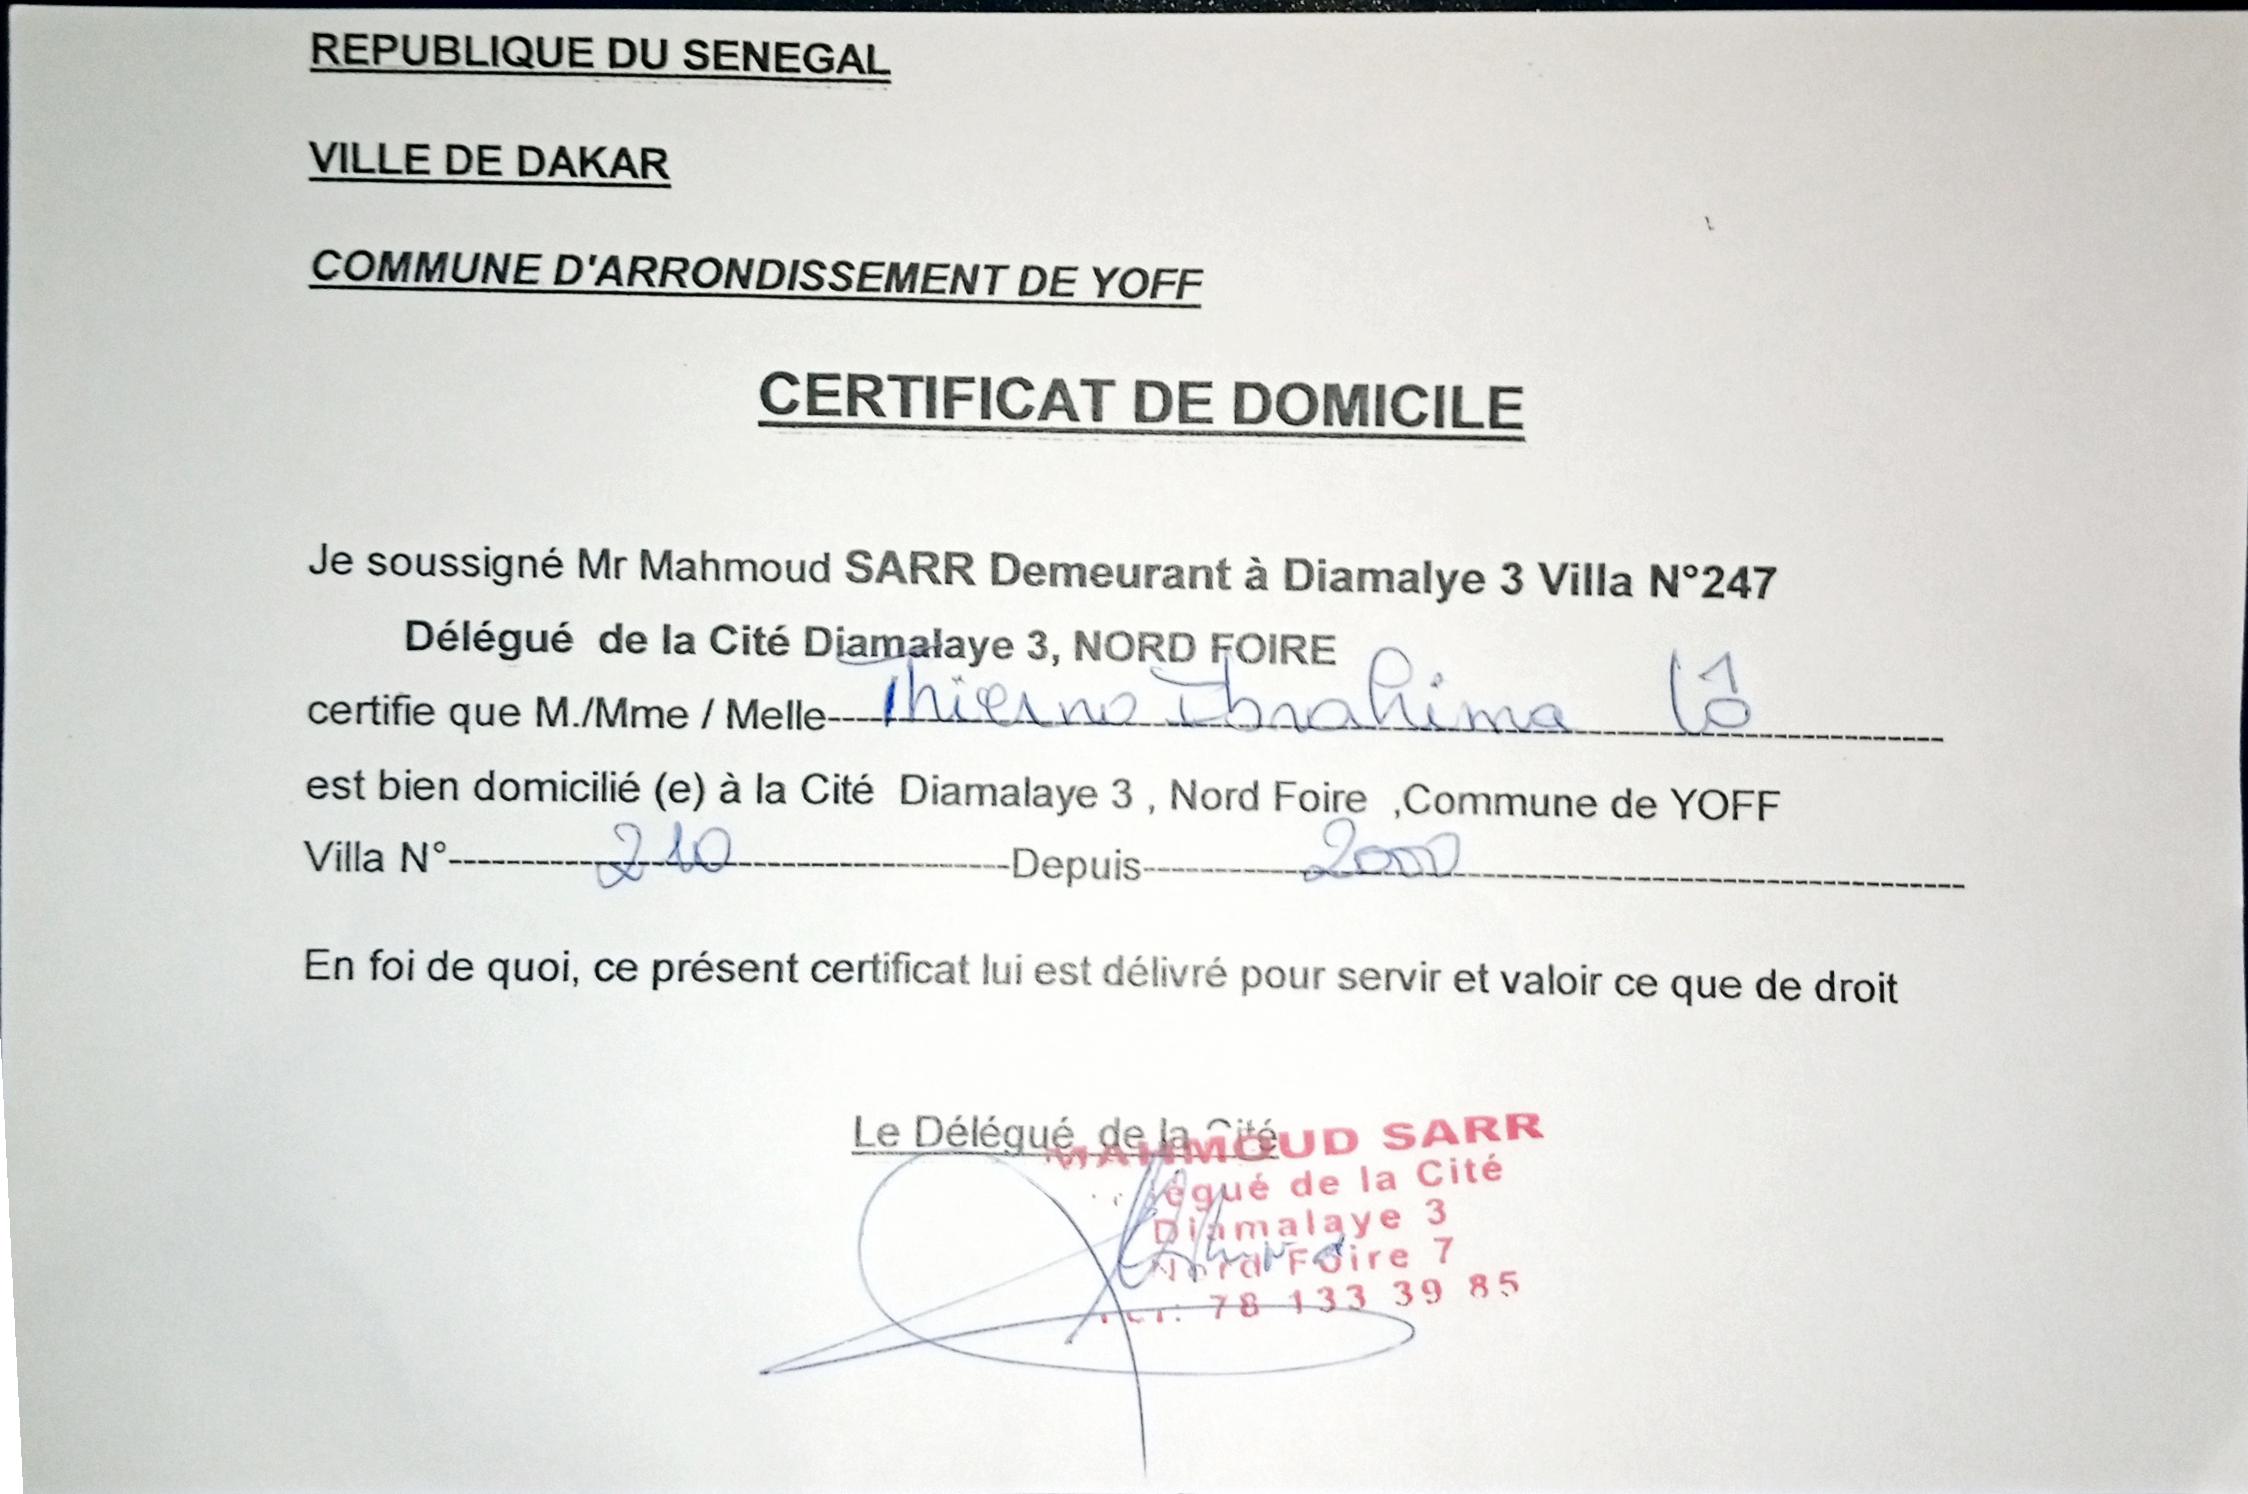 REPUBLIQUE DU SENEGAL
VILLE DE DAKAR
COMMUNE D'ARRONDISSEMENT DE YOFF
CERTIFICAT DE DOMICILE
Je soussigné Mr Mahmoud SARR Demeurant à Diamalye 3 Villa N°247
Délégué de la Cité Diamalaye 3, NORD FOIRE
certifie que M./Mme / Melle---- Thierno Ibrahima Lô
est bien domicilié (e) à la Cité Diamalaye 3 , Nord Foire ,Commune de YOFF
Villa N°---------- 210 ----------Depuis---------- 2000 ----------
En foi de quoi, ce présent certificat lui est délivré pour servir et valoir ce que de droit
Le Délégué de la Cité
MAHMOUD SARR
égué de la Cité
Diamalaye 3
Nord Foire 7
Tel: 78 133 39 85